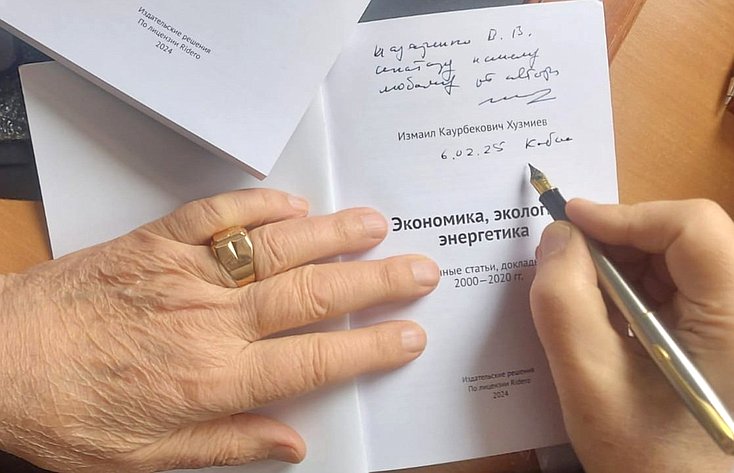 Издательские решения
По лицензии Ridero
2024
Д. В.
от автора
Измаил Каурбекович Хузмиев
6.02.25
Экономика, эколог
энергетика
нные статьи, доклады
2000—2020 гг.
Издательские решения
По лицензии Ridero
2024